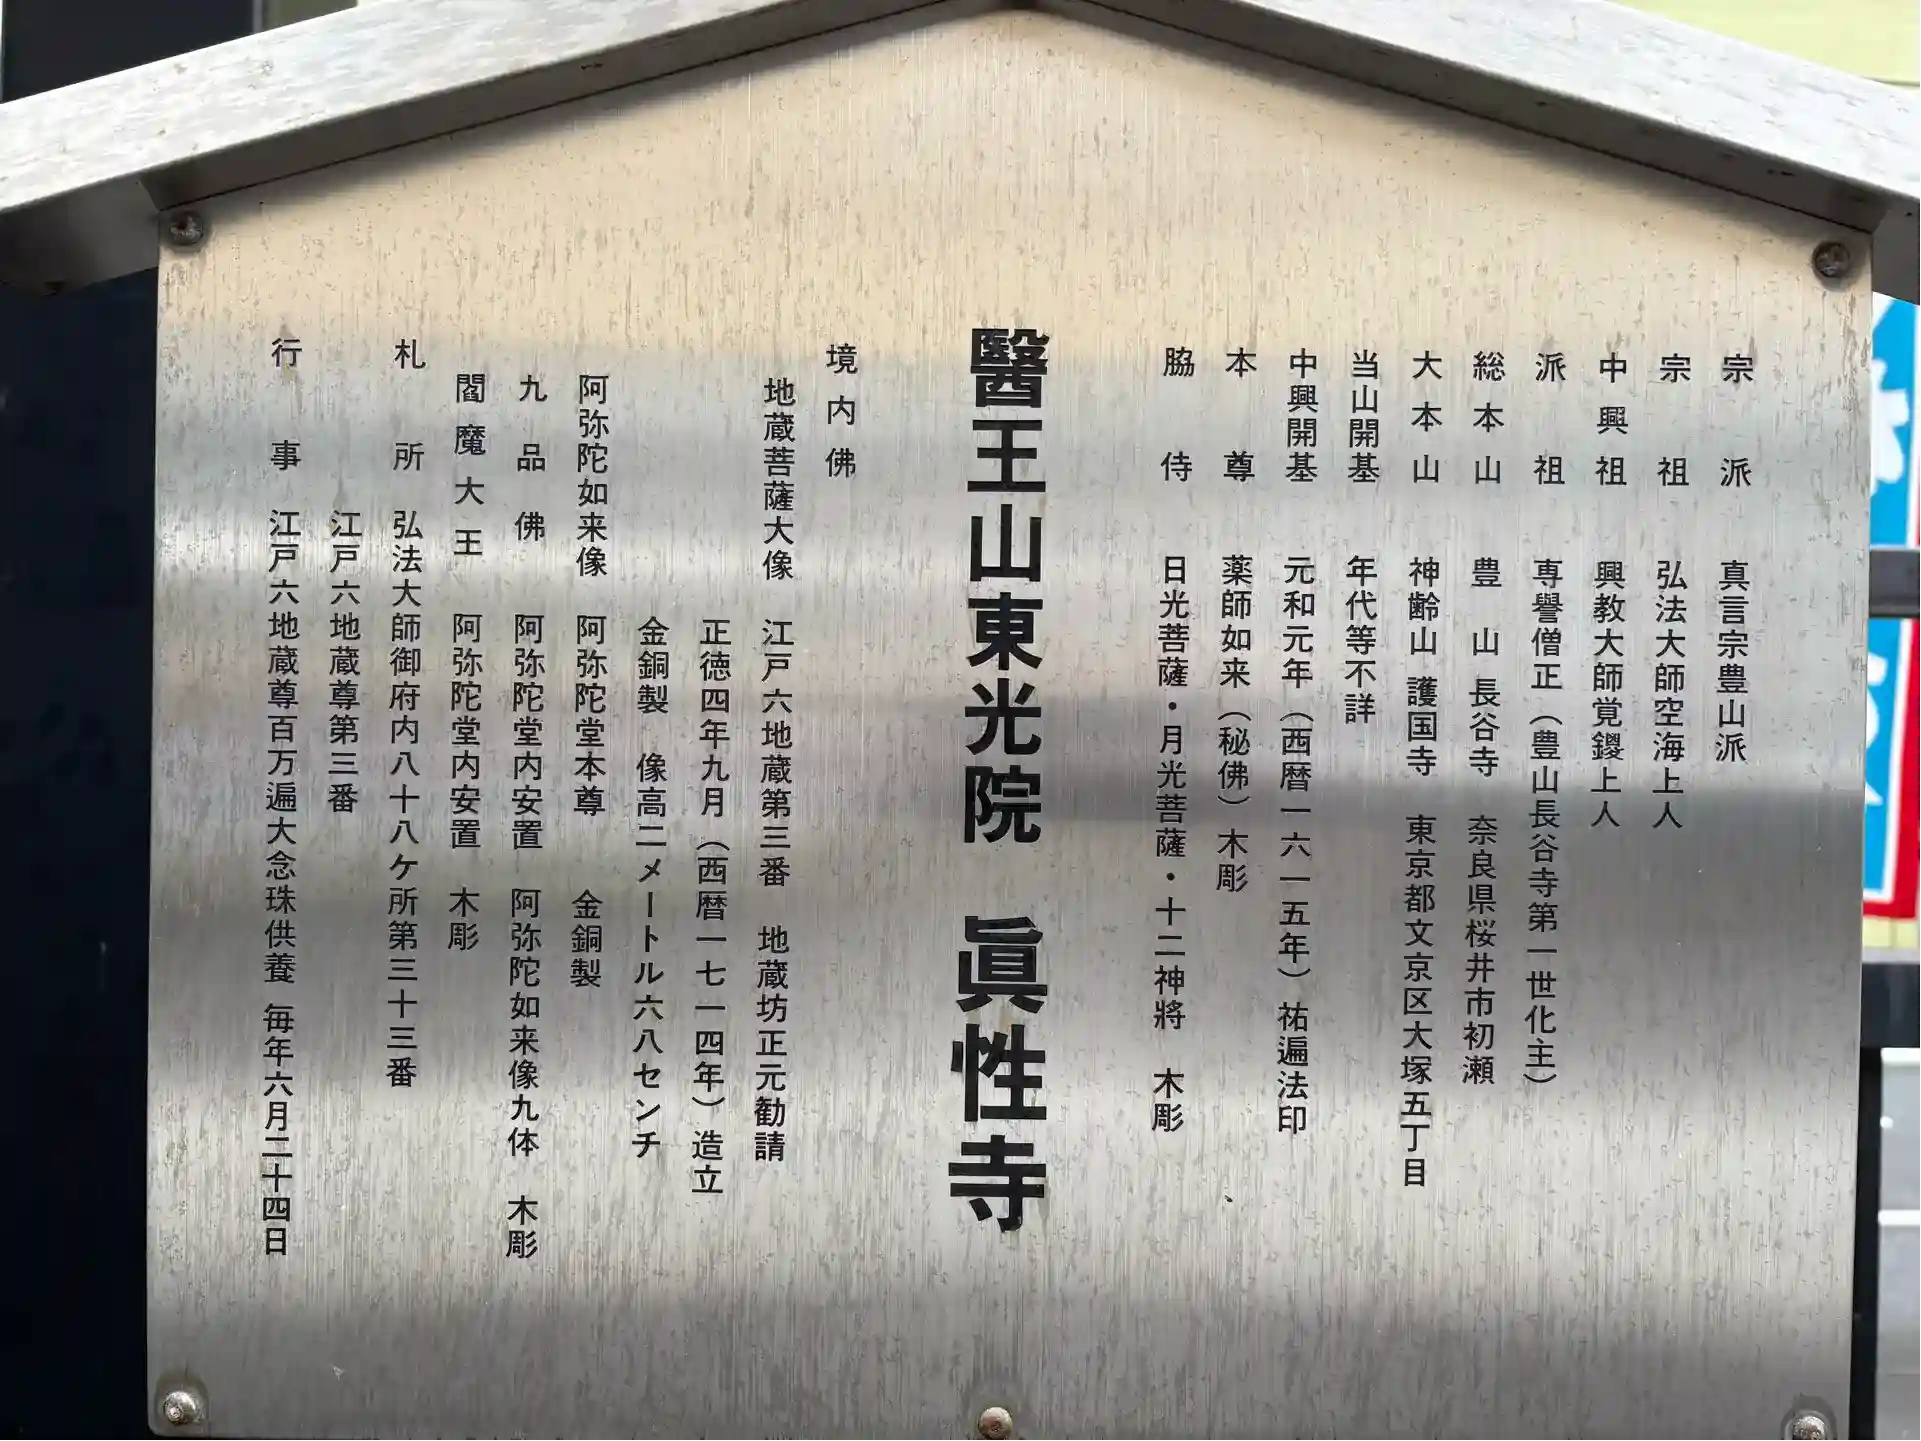 宗派 真言宗豊山派
宗祖 弘法大師空海上人
中興祖 興教大師覚鑁上人
派祖 専誉僧正（豊山長谷寺第一世化主）
総本山 豊山 長谷寺 奈良県桜井市初瀬
大本山 神齢山 護国寺 東京都文京区大塚五丁目
当山開基 年代等不詳
中興開基 元和元年（西暦一六一五年）祐遍法印
本尊 薬師如来（秘佛）木彫
脇侍 日光菩薩・月光菩薩・十二神將 木彫
醫王山東光院 眞性寺
境内佛
地蔵菩薩大像 江戸六地蔵第三番 地蔵坊正元勧請
正徳四年九月（西暦一七一四年）造立
金銅製 像高二メートル六八センチ
阿弥陀如来像 阿弥陀堂本尊 金銅製
九品佛 阿弥陀堂内安置 阿弥陀如来像九体 木彫
閻魔大王 阿弥陀堂内安置 木彫
札所 弘法大師御府内八十八ケ所第三十三番
江戸六地蔵尊第三番
行事 江戸六地蔵尊百万遍大念珠供養 毎年六月二十四日